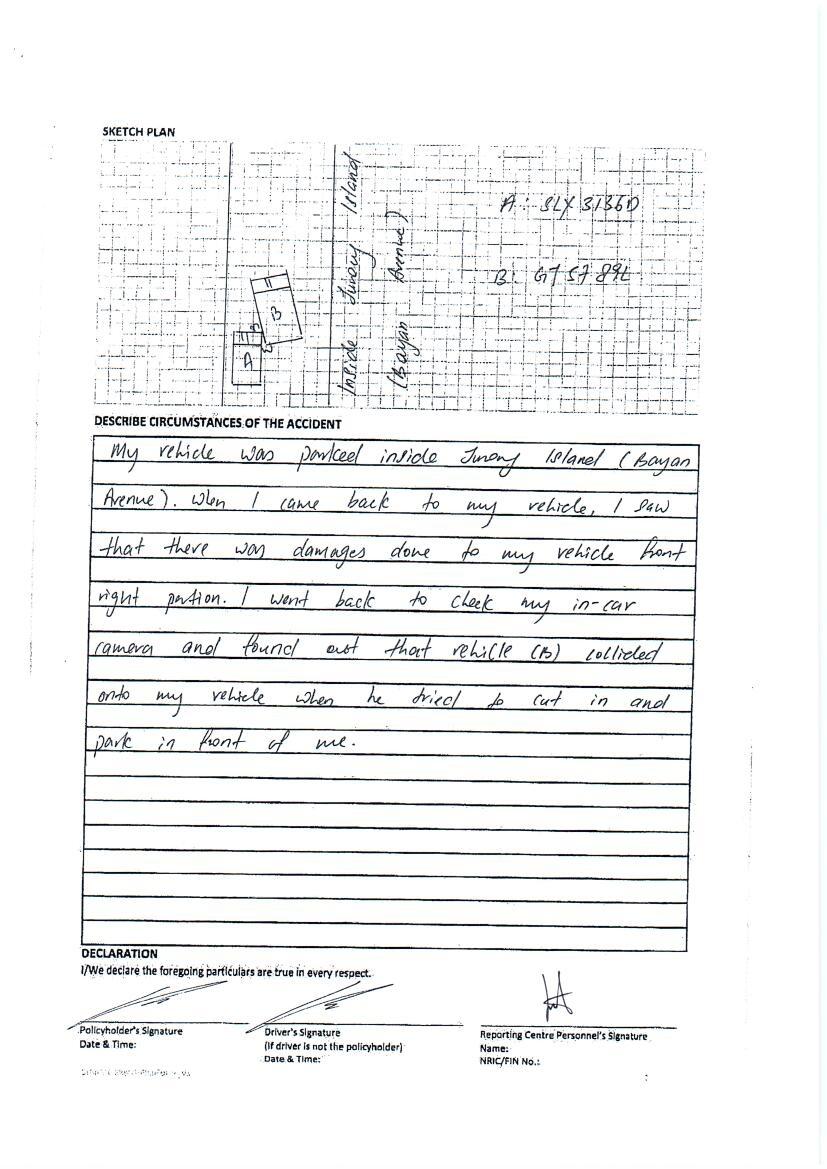 SKETCH PLAN
Inside Jurong Island
(Bayan Avenue)
A: SLX 3136D
B: GT5789L
B
A
DESCRIBE CIRCUMSTANCES OF THE ACCIDENT
My vehicle was parked inside Jurong Island (Bayan
Avenue). When I came back to my vehicle, I saw
that there was damages done to my vehicle front
right portion. I went back to check my in-car
camera and found out that vehicle (B) collided
onto my vehicle when he tried to cut in and
park in front of me.
DECLARATION
I/We declare the foregoing particulars are true in every respect.
Policyholder's Signature
Date & Time:
Driver's Signature
(If driver is not the policyholder)
Date & Time:
Reporting Centre Personnel's Signature
Name:
NRIC/FIN No.: